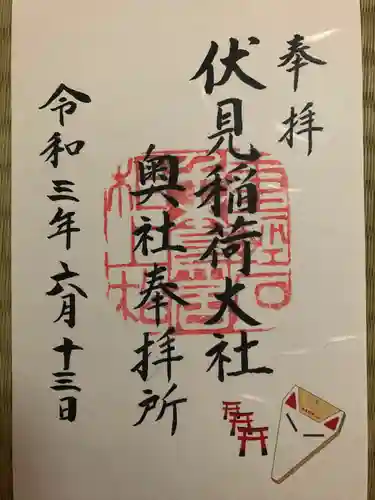 奉拝
伏見稲荷大社
奥社奉拝所
令和三年六月十三日